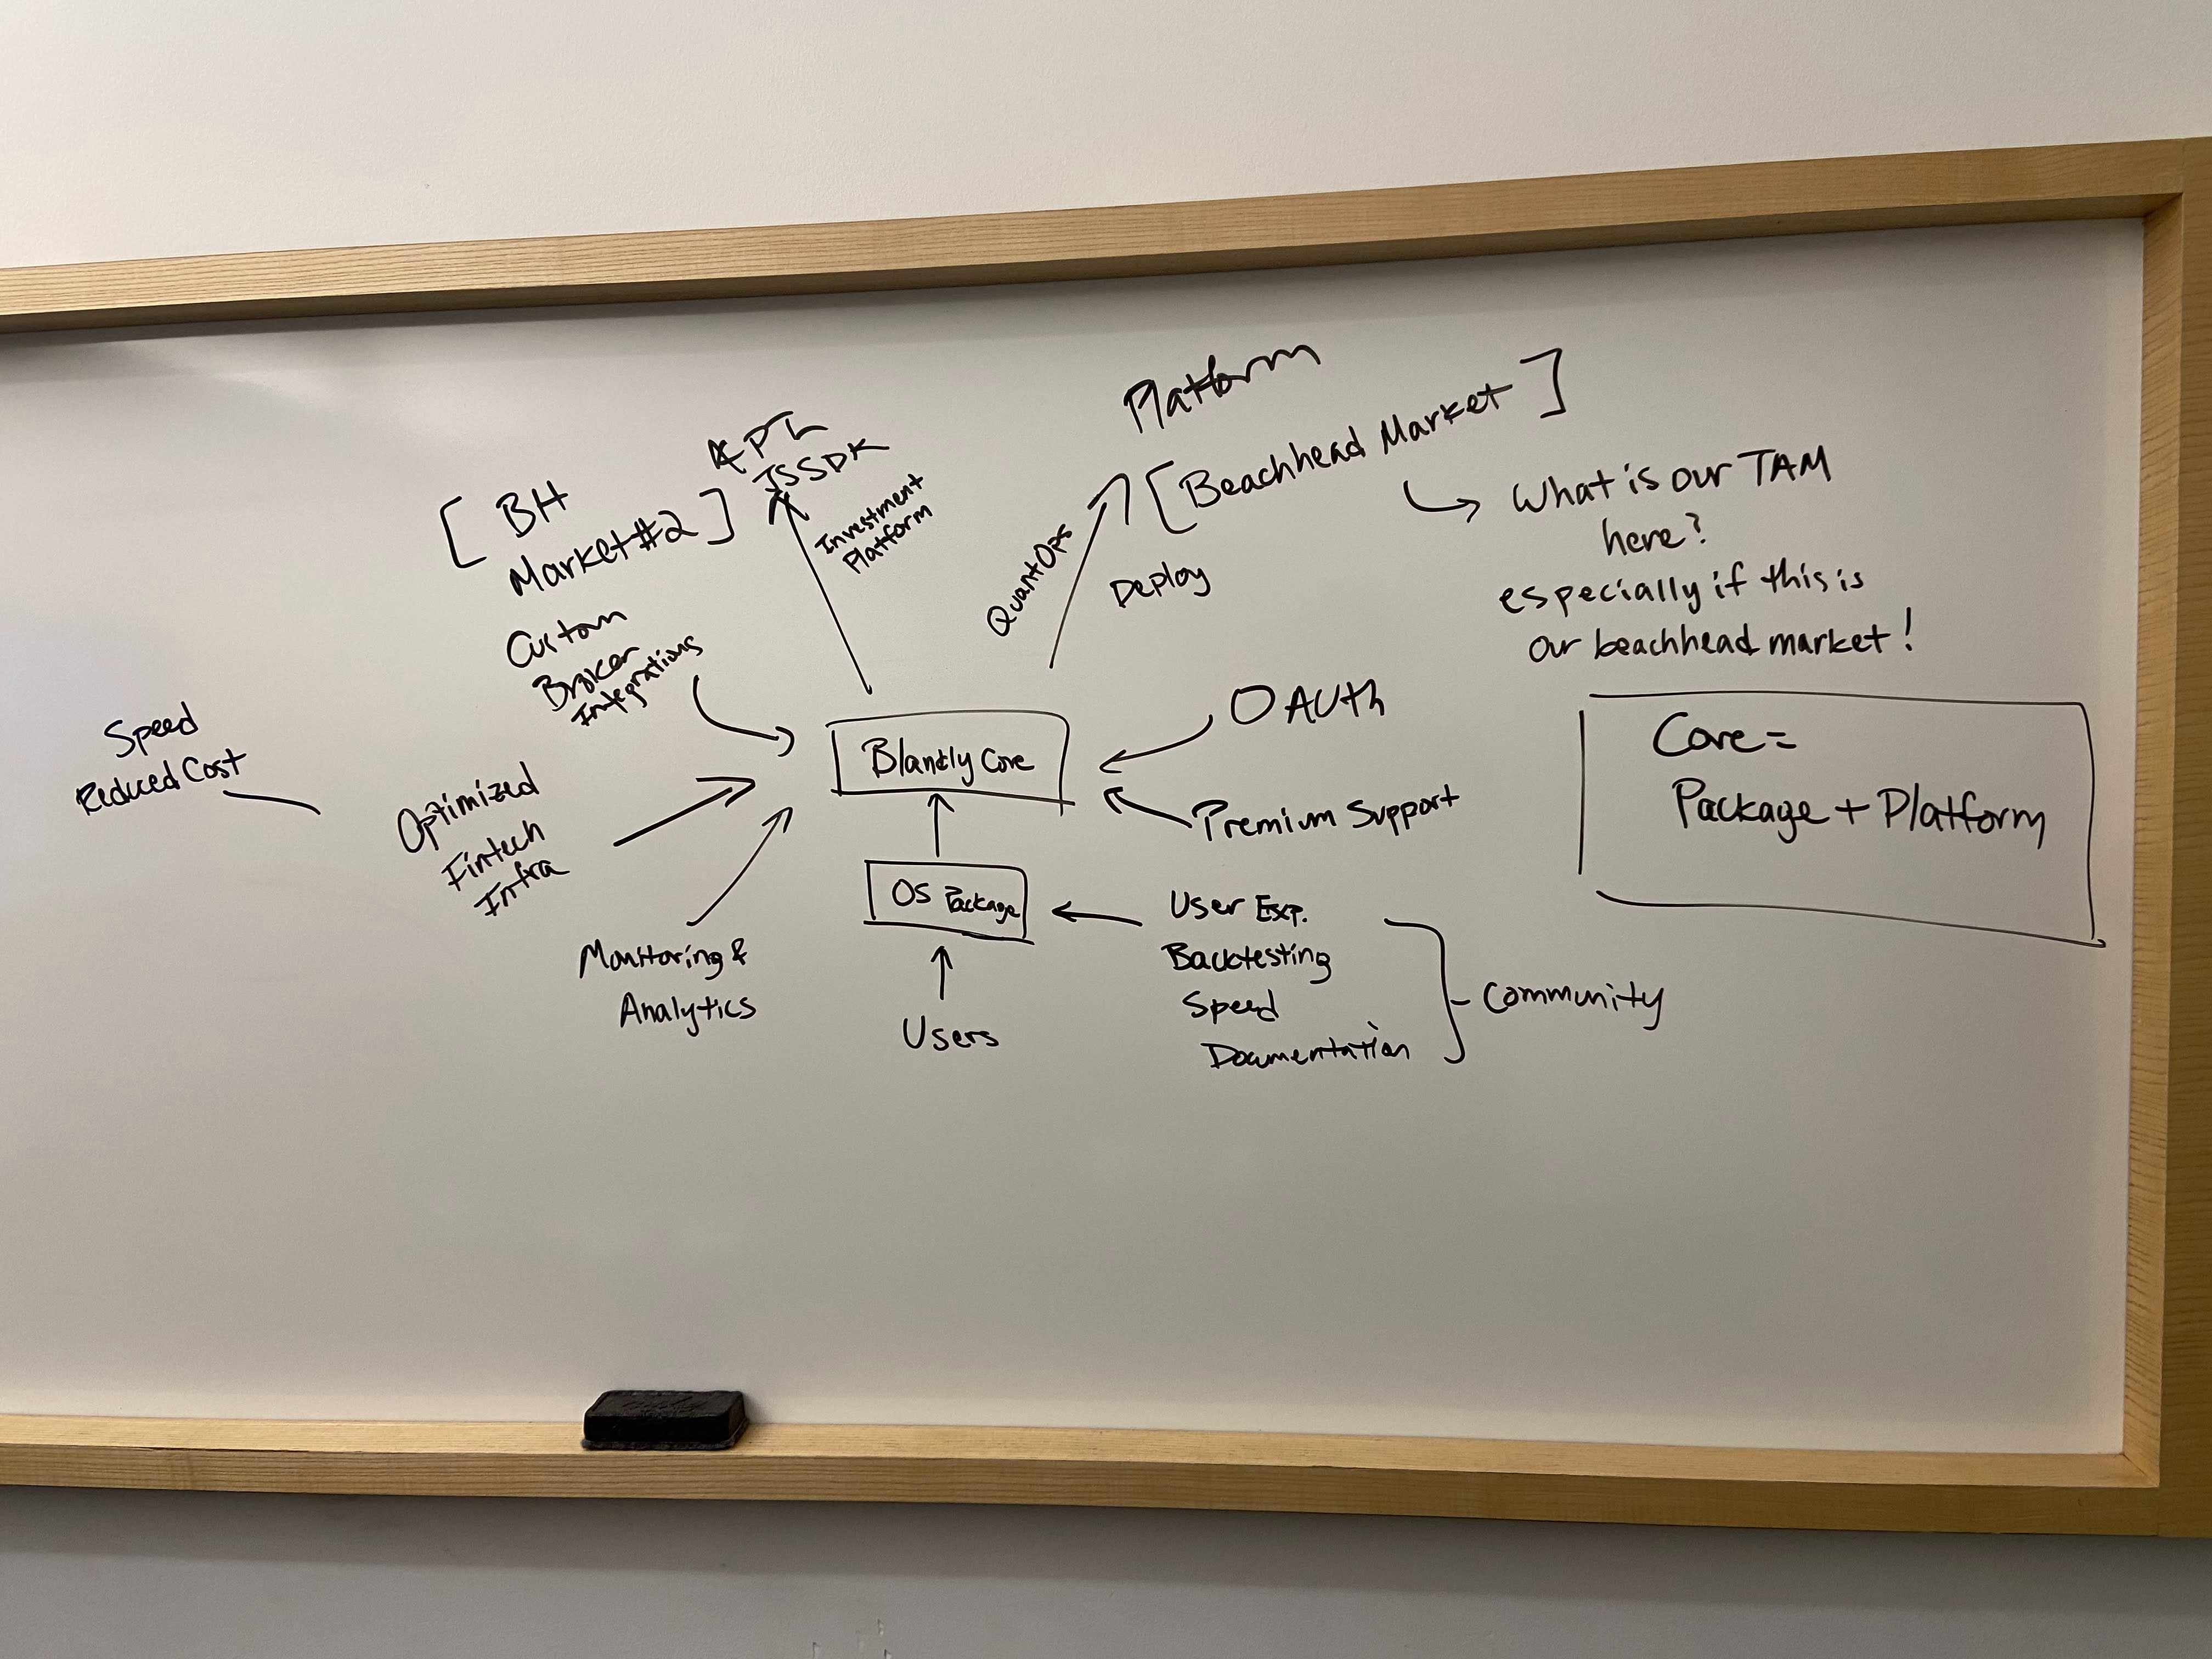 Platform
[Beachhead Market]
What is our TAM
here?
especially if this is
our beachhead market!
API
JSSDK
Investment
Platform
QuantOps
Deploy
[BH
Market #2]
Custom
Broker
Integrations
Speed
Reduced Cost
Optimized
Fintech
Infra
Monitoring &
Analytics
Blankly Core
OS Package
Users
OAUth
Premium Support
User Exp.
Backtesting
Speed
Documentation
Community
Core =
Package + Platform